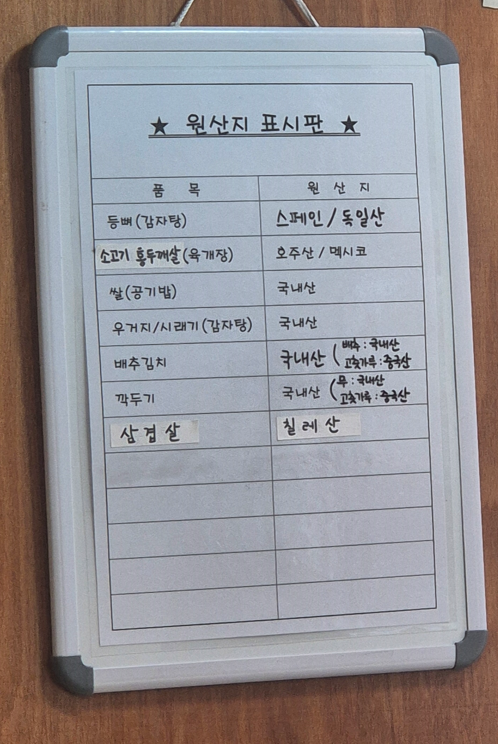 ★ 원산지 표시판 ★
품 목 원 산 지
등뼈(감자탕) 스페인/독일산
소고기 홍두깨살(육개장) 호주산/멕시코
쌀(공기밥) 국내산
우거지/시래기(감자탕) 국내산
배추김치 국내산 (배추:국내산
고춧가루:중국산
깍두기 국내산 (무:국내산
고춧가루:중국산
삼겹살 칠레산